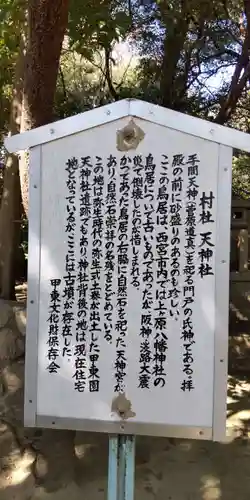 村社 天神社
手間天神（菅原道真）を祀る門戸の氏神である。拝
殿の前に砂盛りのあるのも珍しい。
ここの鳥居は、西宮市内では上ヶ原八幡神社の
鳥居について古いものであったが、阪神・淡路大震
災で倒壊したのが惜しまれる。
かつてあった鳥居の右脇に自然石を祀った天神宮が
あり、自然石崇拝の名残をとどめている。
この地は弥生時代の弥生式土器が出土した甲東園
天神山遺跡でもあり、神社背後の地は、現在住宅
地となっているが、ここには古墳が存在した。
甲東文化財保存会